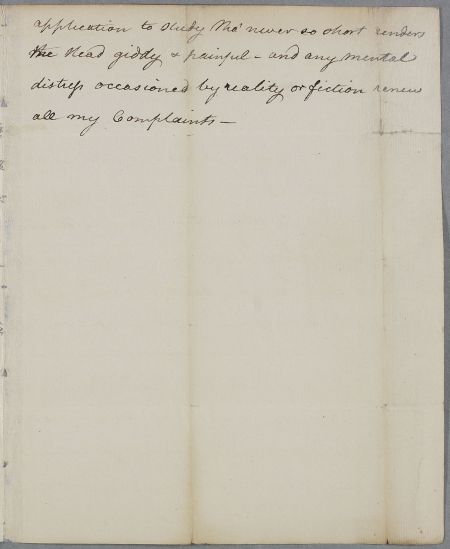 application to study tho' never so short renders
the Head giddy & painful – and any mental
distress occasioned by reality or fiction renew
all my Complaints –